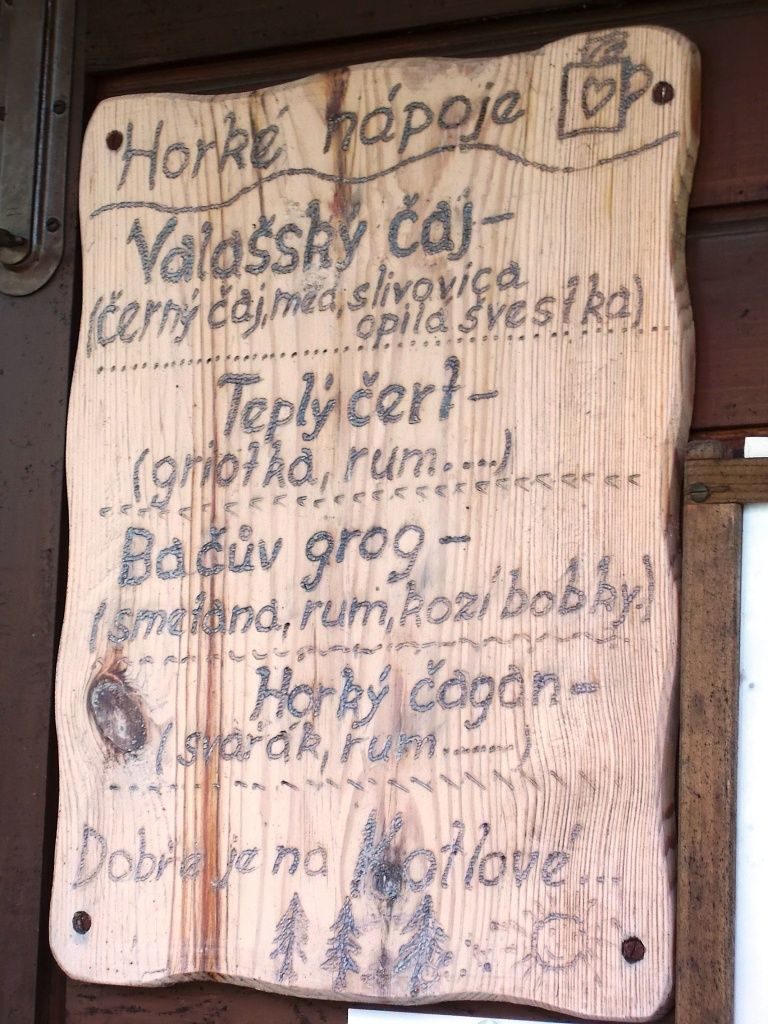 Horké nápoje
Valašský čaj-
(černý čaj, med, slivovica
opilá švestka)
Teplý čert-
(griotka, rum....)
Bačův grog-
(smetana, rum, kozí bobky.)
Horký čagan-
(svařák, rum.......)
Dobře je na Kotlové...